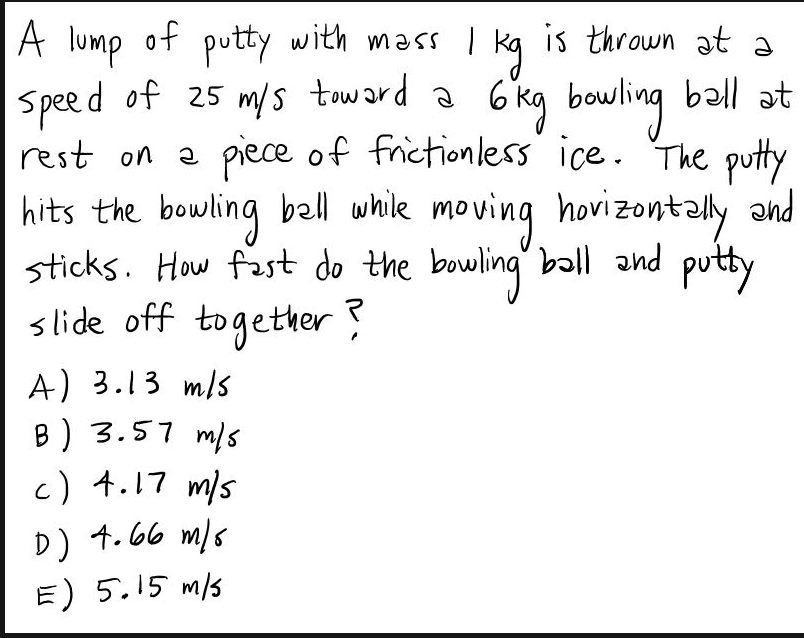 A lump of putty with mass 1 kg is thrown at a
speed of 25 m/s toward a 6 kg bowling ball at
rest on a piece of frictionless ice. The putty
hits the bowling ball while moving horizontally and
sticks. How fast do the bowling ball and putty
slide off together?
A) 3.13 m/s
B) 3.57 m/s
C) 4.17 m/s
D) 4.66 m/s
E) 5.15 m/s